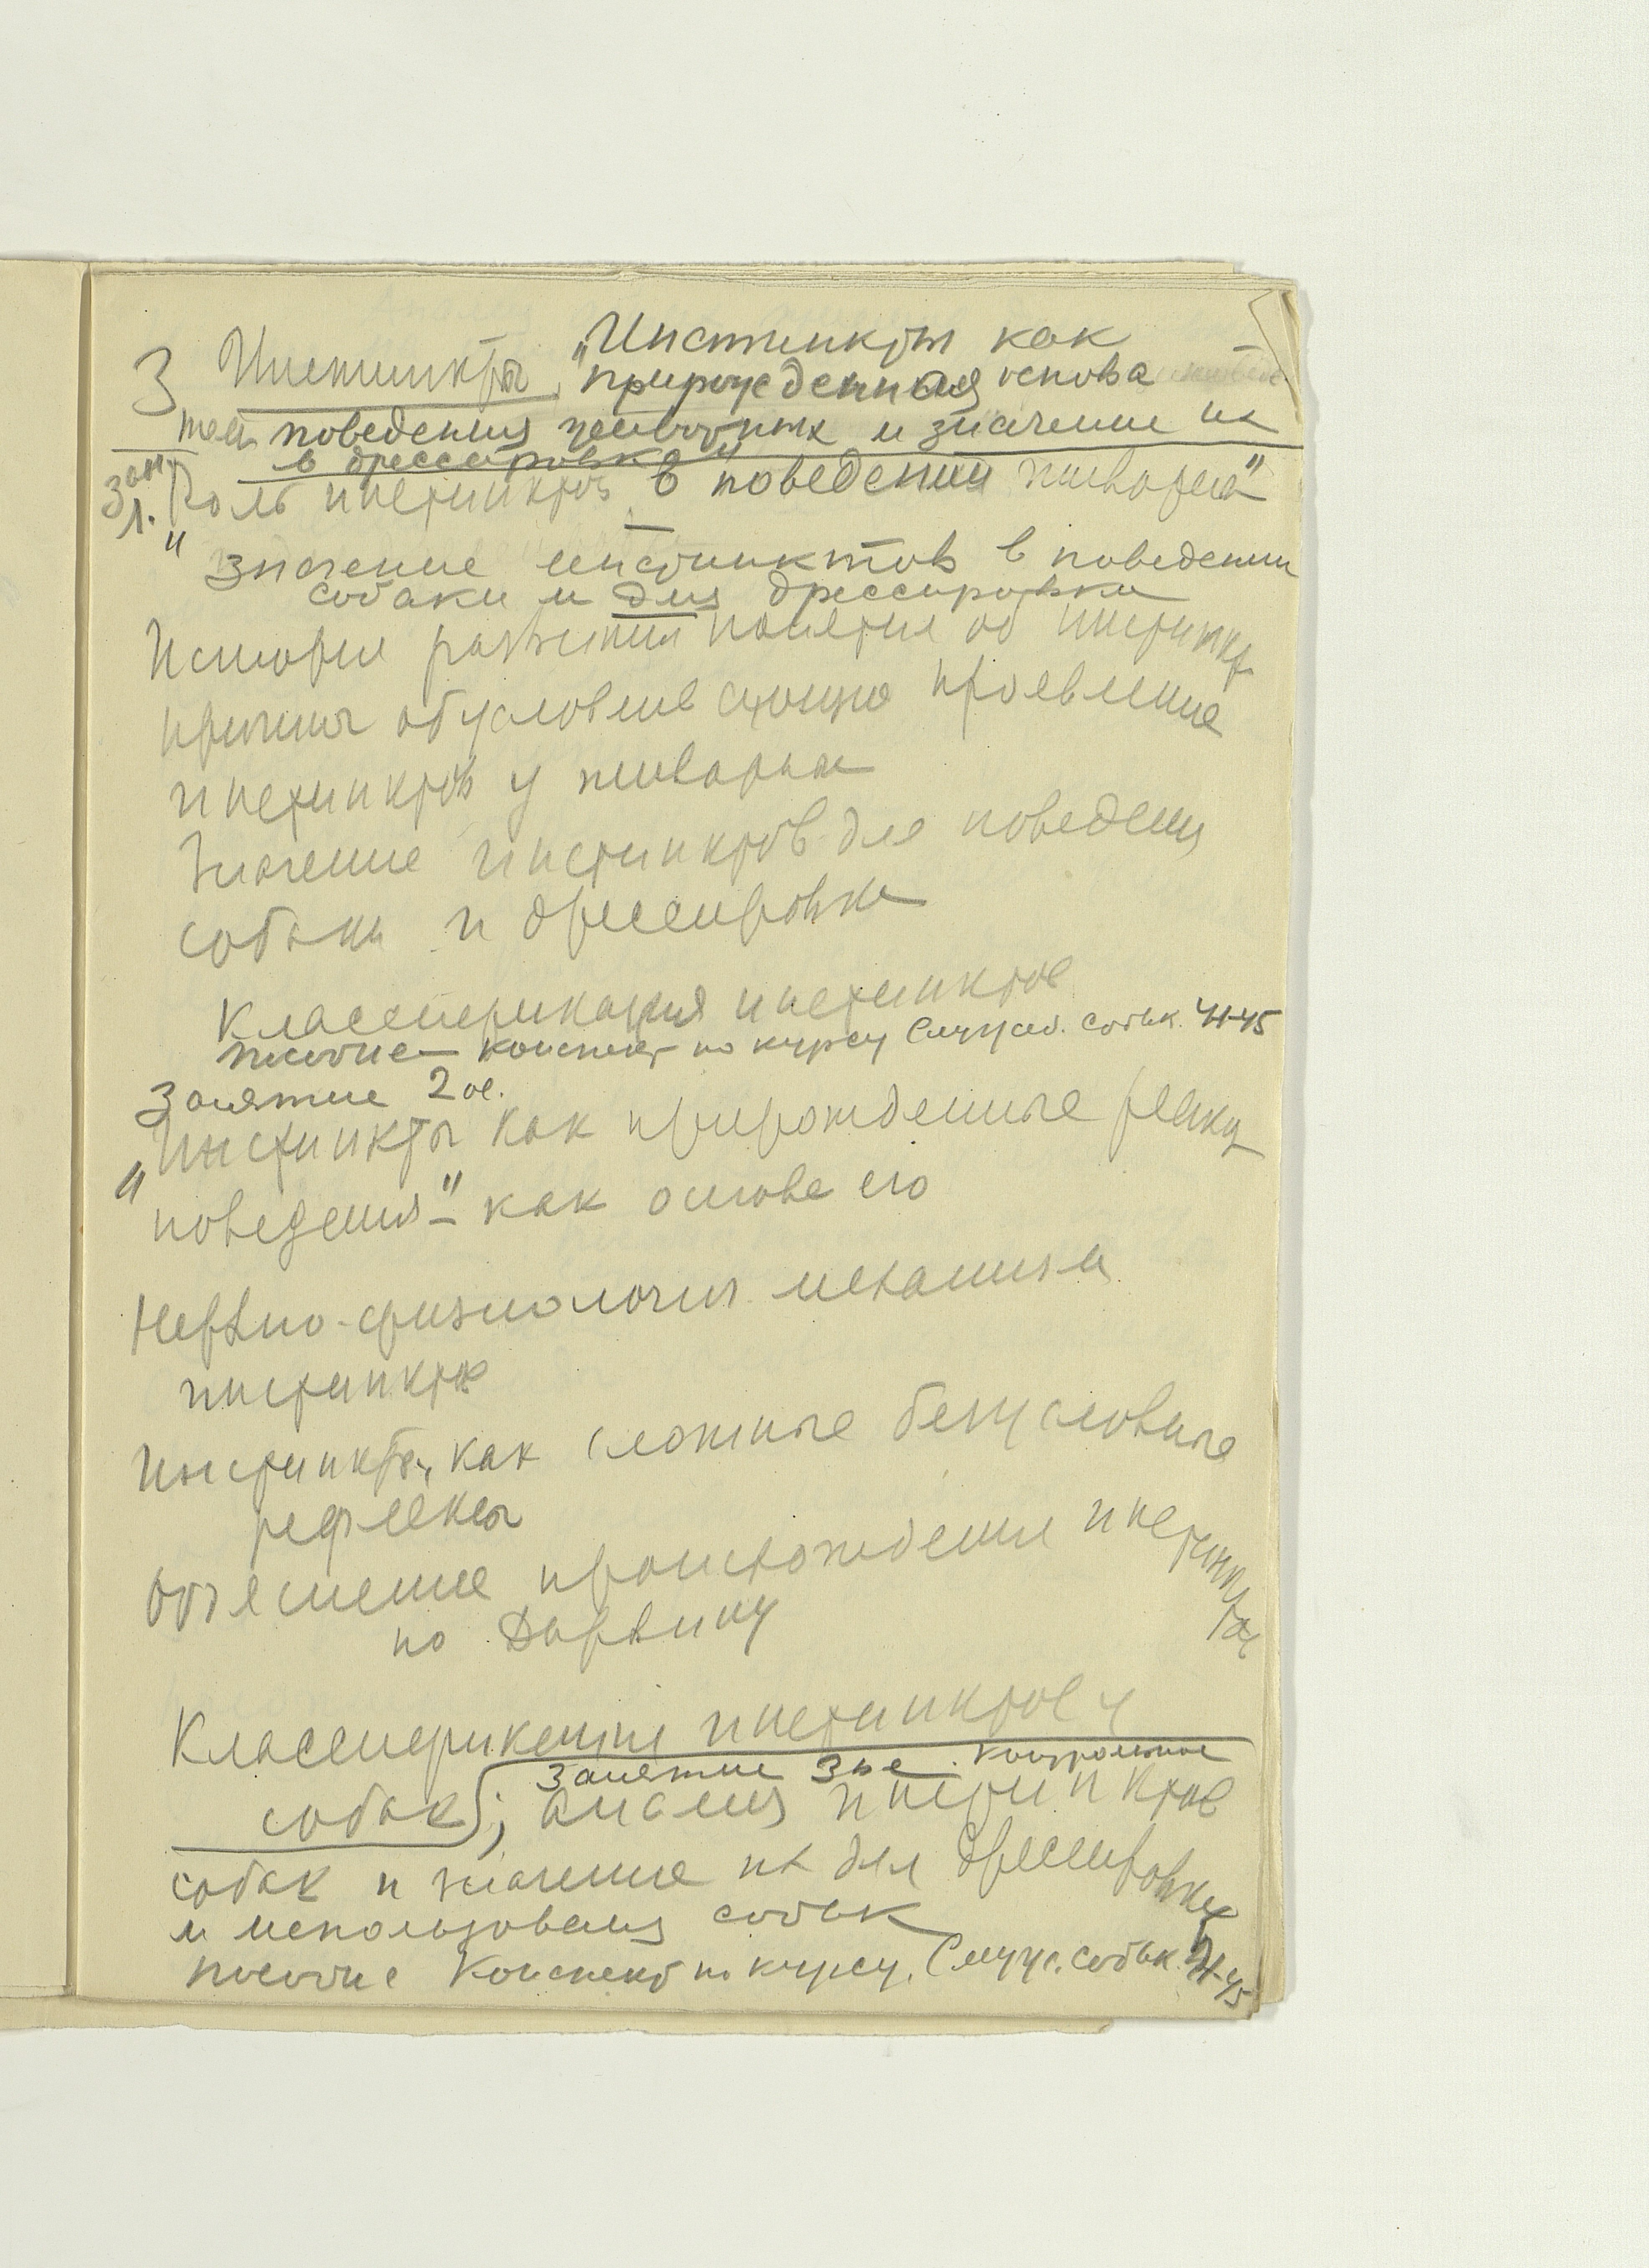 3 Инстинкты „Инстинкты как
прирожденная основа
тем поведения животных и значение их
в дрессировке"
зан. Роль инстинктов в поведении животна"
1.
" Значение инстинктов в поведении
собаки и для дрессировки
История развития понятия об инстинкт
причины обусловливающие проявление
инстинктов у животных
Значение инстинктов для поведения
собаки и дрессировки
Классификация инстинктов
пособие – конспект по курсу Служеб. собак. 41-45
Занятие 2ое.
„Инстинкты как прирожденные реакц
поведения" – как основа его
Нервно-физиологич. механизм
инстинктов
Инстинкты, как сложные безусловные
рефлексы
Объяснение происхождения инстинктов
по Дарвину
Классификация инстинктов у
собак; Занятие 3ье. Контрольное
анализ инстинктов
собак и значение их для дрессировки
и использования собак
пособие Конспект по курсу. Служ. собак. 41-45